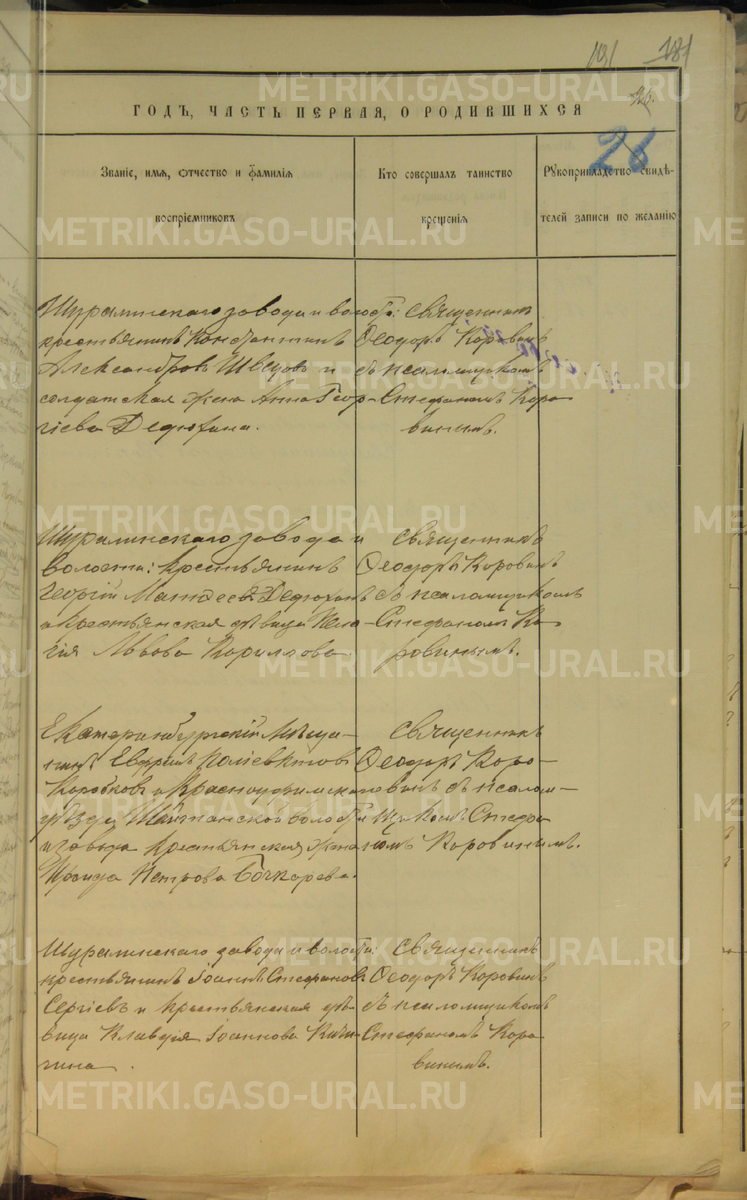 191 181
26.
ГОДЪ, ЧАСТЬ ПЕРВАЯ, О РОДИВШИХСЯ
26
Званіе, имя, отчество и фамилія
воспріемниковъ
Кто совершалъ таинство
крещенія
Рукоприкладство свидѣ-
телей записи по желанію
Шуралинскаго завода и волости:
крестьянинъ Константинъ
Александровъ Швецовъ и
солдатская жена Анна Геор-
гіева Дедюхина.
Священникъ
Ѳеодоръ Коровинъ
съ псаломщикомъ
Стефаномъ Коро
винымъ.
Шуралинскаго завода и
волости: крестьянинъ
Георгій Матѳеевъ Дедюхинъ
и крестьянская дѣвица Пела-
гія Львова Кориллова
Священникъ
Ѳеодоръ Коровинъ
съ псаломщикомъ
Стефаномъ Ко
ровинымъ.
Екатеринбургскій мѣща-
нинъ Евфимъ Поліевктовъ
Коробковъ и Красноуфимскаго
уѣзда Шайтанской волости
и завода крестьянская жена
Ираида Петрова Бочкарева.
Священникъ
Ѳеодоръ Коро-
винъ съ псалом-
щикомъ Стефа
номъ Коровинымъ.
Шуралинскаго завода и волости:
крестьянинъ Іоаннъ Стефановъ
Сергіевъ и крестьянская дѣ-
вица Клавдія Іоаннова Кичи-
гина.
Священникъ
Ѳеодоръ Коровинъ
съ псаломщикомъ
Стефаномъ Коро
винымъ.
METRIKI.GASO-URAL.RU